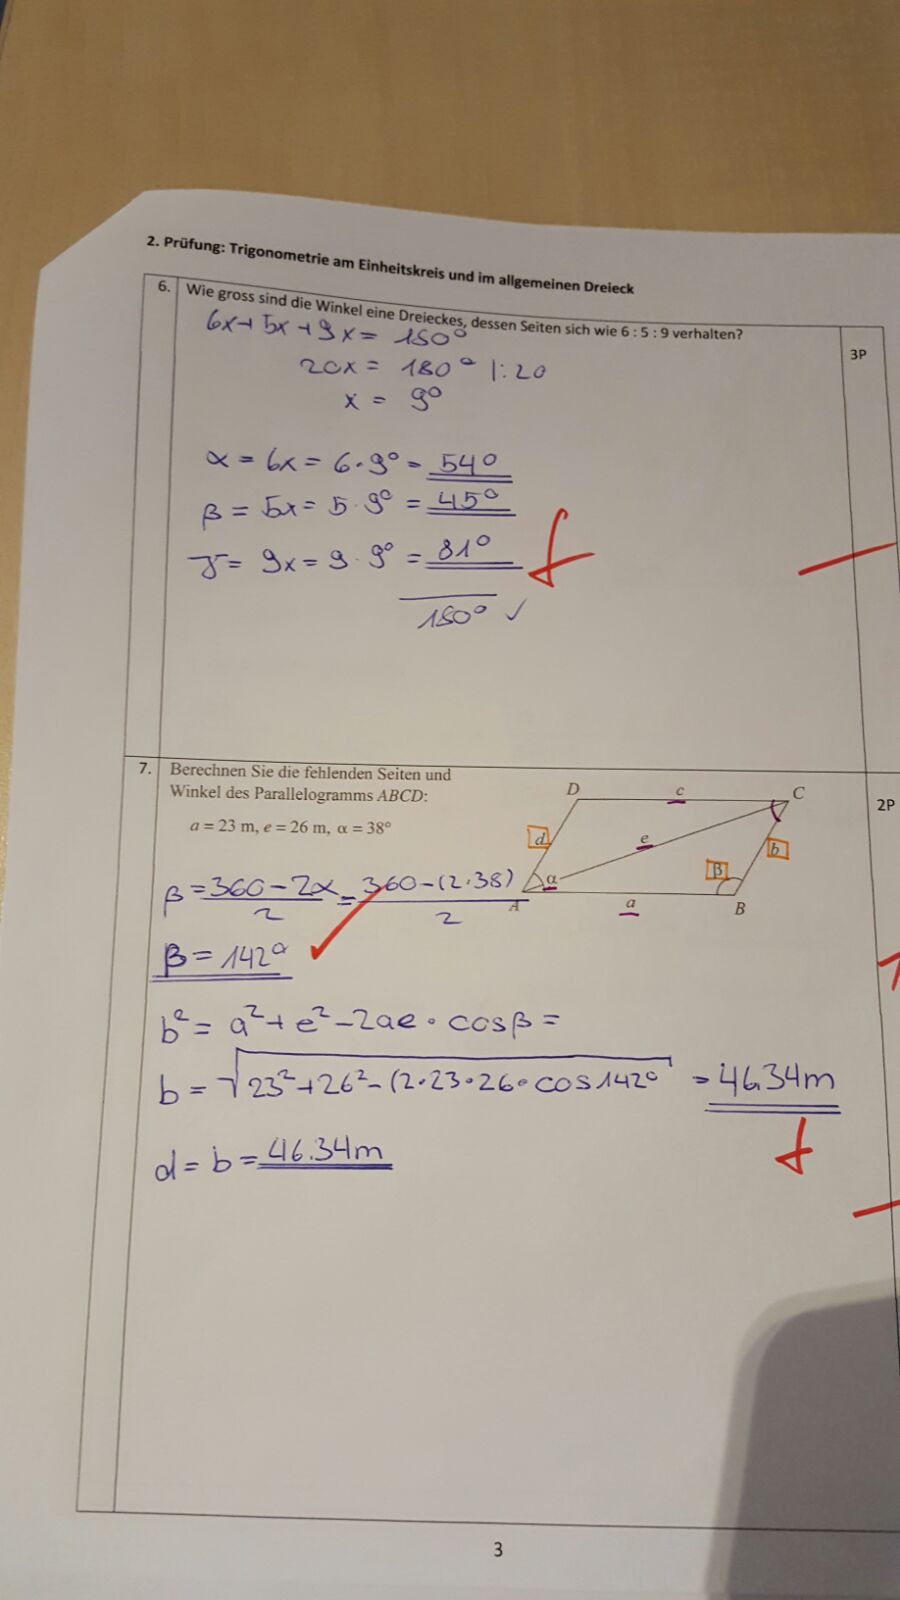 2. Prüfung: Trigonometrie am Einheitskreis und im allgemeinen Dreieck
6. Wie gross sind die Winkel eine Dreieckes, dessen Seiten sich wie 6 : 5 : 9 verhalten?
3P
6x+5x+9x = 180°
20x = 180° |:20
x = 9°
α = 6x = 6·9° = 54°
β = 5x = 5·9° = 45°
γ = 9x = 9·9° = 81° f
180° ✓
7. Berechnen Sie die fehlenden Seiten und
Winkel des Parallelogramms ABCD:
2P
a = 23 m, e = 26 m, α = 38°
D c C
d e b
α β
A a B
β = (360-2α)/2 = (360-(2·38))/2
β = 142° ✓
b² = a² + e² - 2ae · cosβ =
b = √23²+26²-(2·23·26·cos142° = 46.34m
f
d = b = 46.34m
3